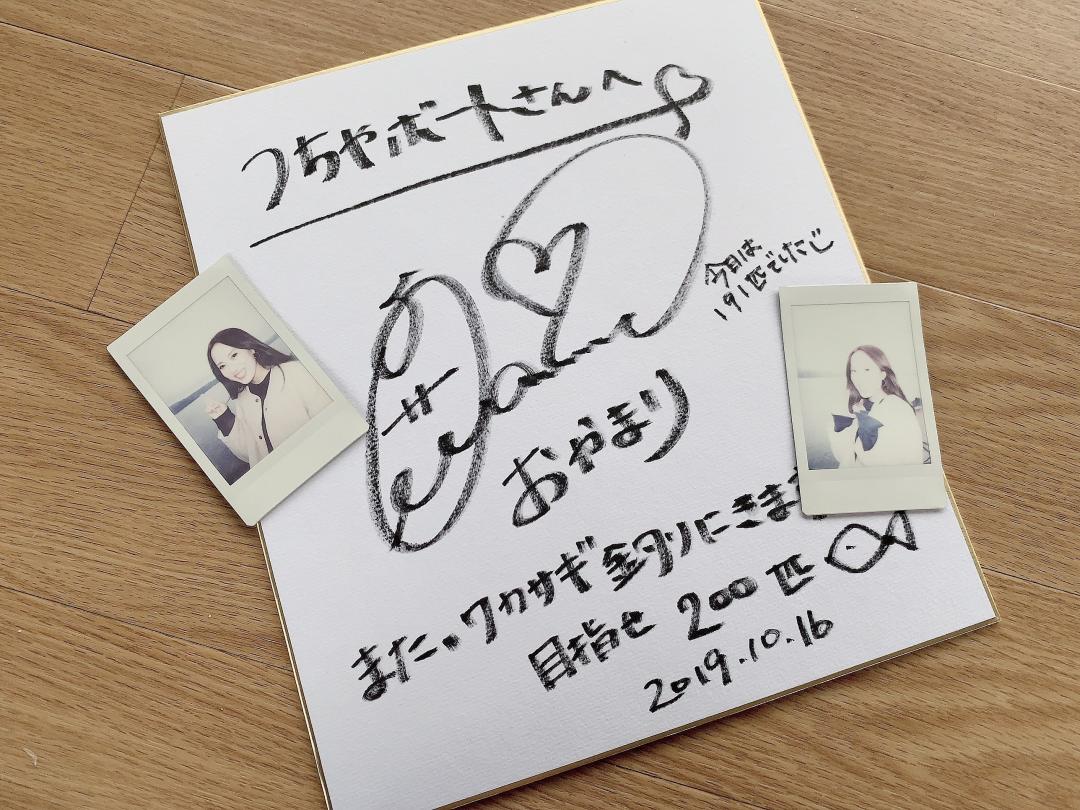 つちやボートさんへ
今日は
191匹でした
おやまり
また。ワカサギ釣りにきま
目指せ 200匹
2019.10.16